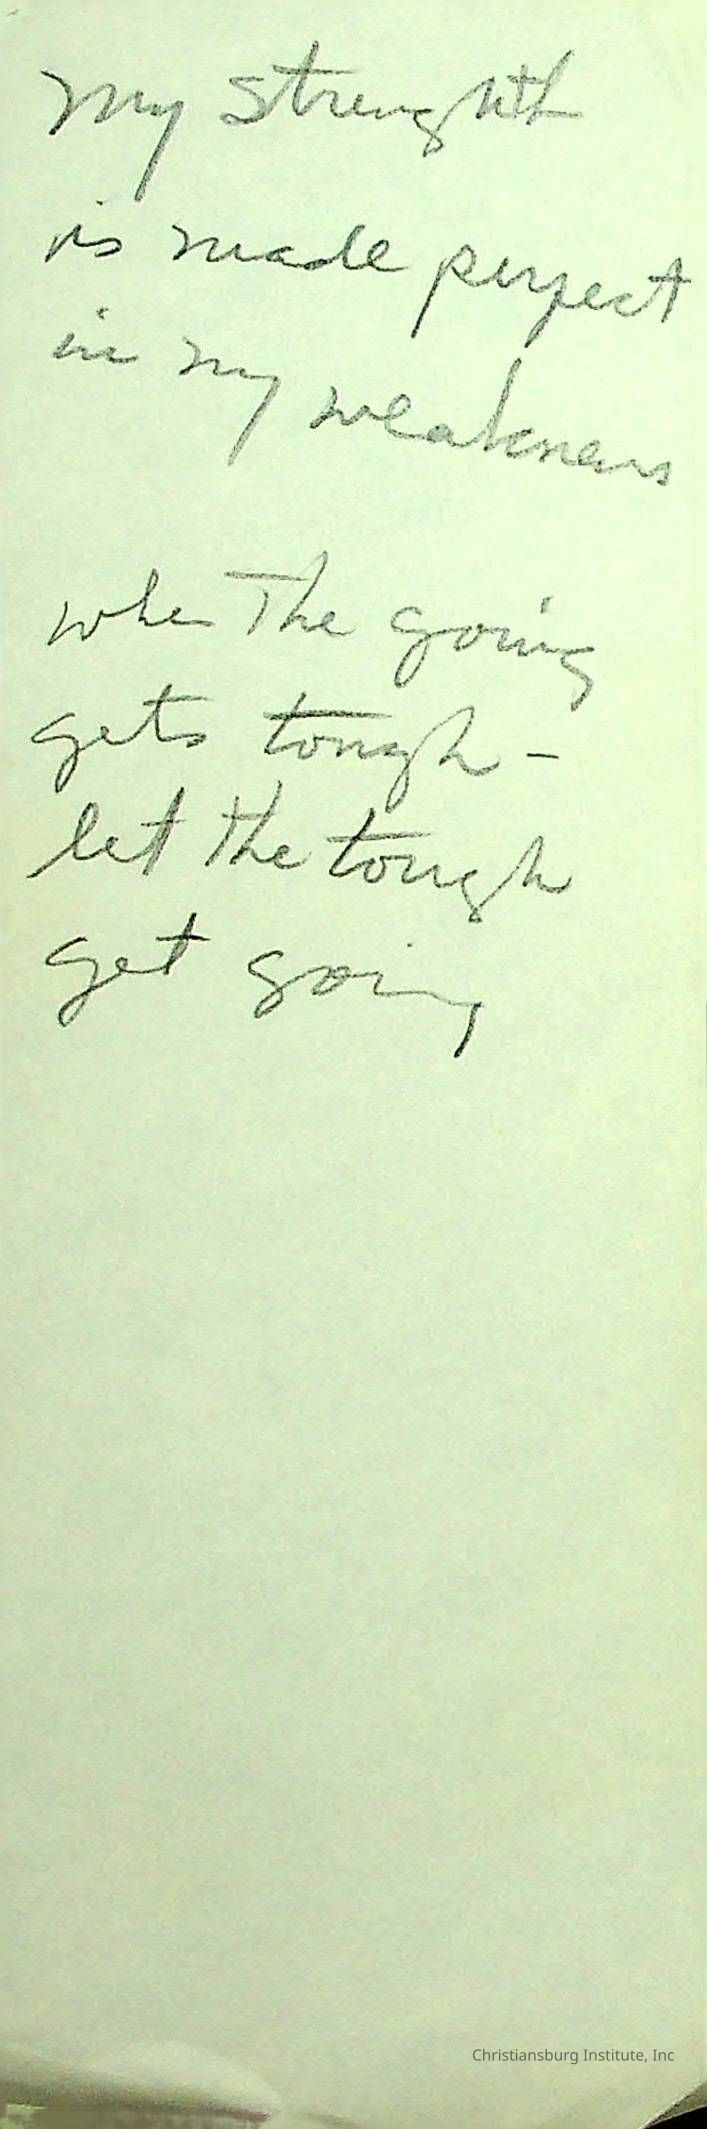 My Strenghth
is made perfect
in my weakness
when The going
gets tough -
let the tough
get going
Christiansburg Institute, Inc